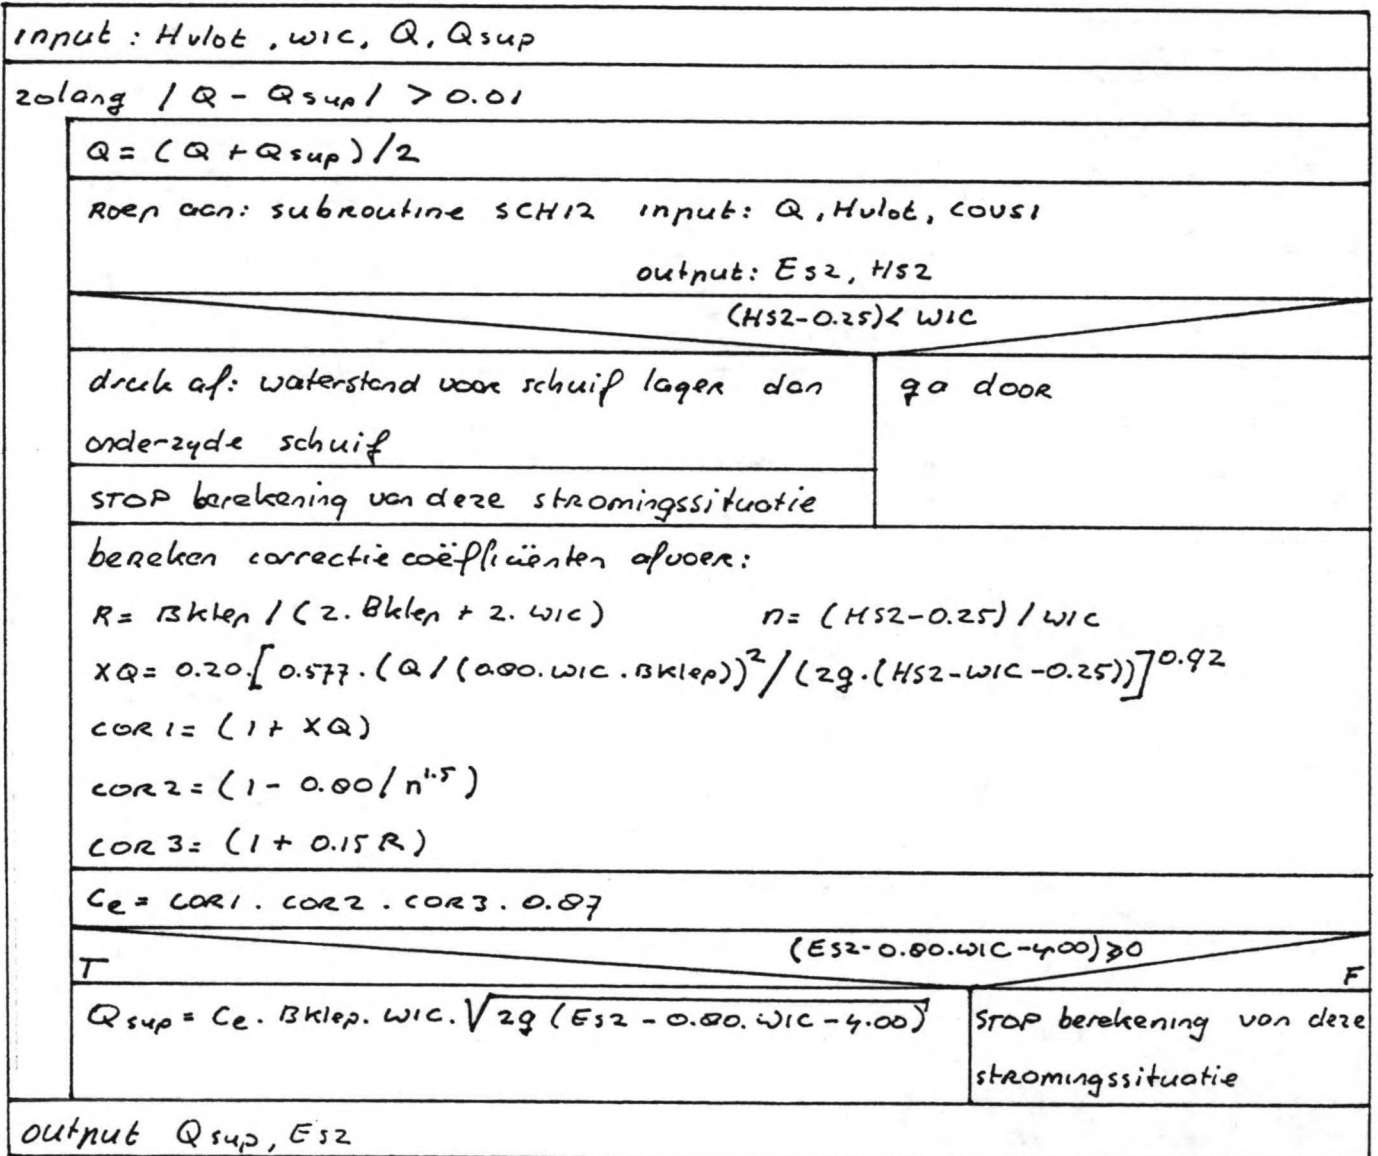 input : Hvlot, WIC, Q, Qsup
zolang |Q - Qsup| > 0.01
Q = (Q + Qsup)/2
Roep aan: subroutine SCH12 input: Q, Hvlot, COUSI
output: Es2, Hs2
(HS2-0.25)< WIC
druk af: waterstand voor schuif lager dan
onderzyde schuif
ga door
STOP berekening van deze stromingssituatie
bereken correctie coëfficiënten afvoer:
R = Bklep / (2. Bklep + 2. WIC) n = (HS2-0.25) / WIC
XQ = 0.20.[0.577. (Q / (0.80. WIC. Bklep))² / (2g.(HS2-WIC-0.25))]^0.92
COR1 = (1 + XQ)
COR2 = (1 - 0.80/n^1.5)
COR3 = (1 + 0.15 R)
Ce = COR1 . COR2 . COR3 . 0.87
(ES2-0.80.WIC-4.00)⩾0
T F
Qsup = Ce. Bklep. WIC. √2g (Es2 - 0.80. WIC - 4.00)
STOP berekening van deze
stromingssituatie
output Qsup, Es2